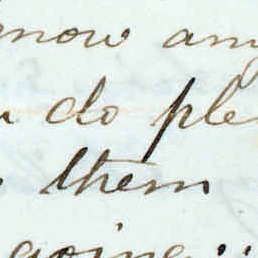 know any
do ple
them
going